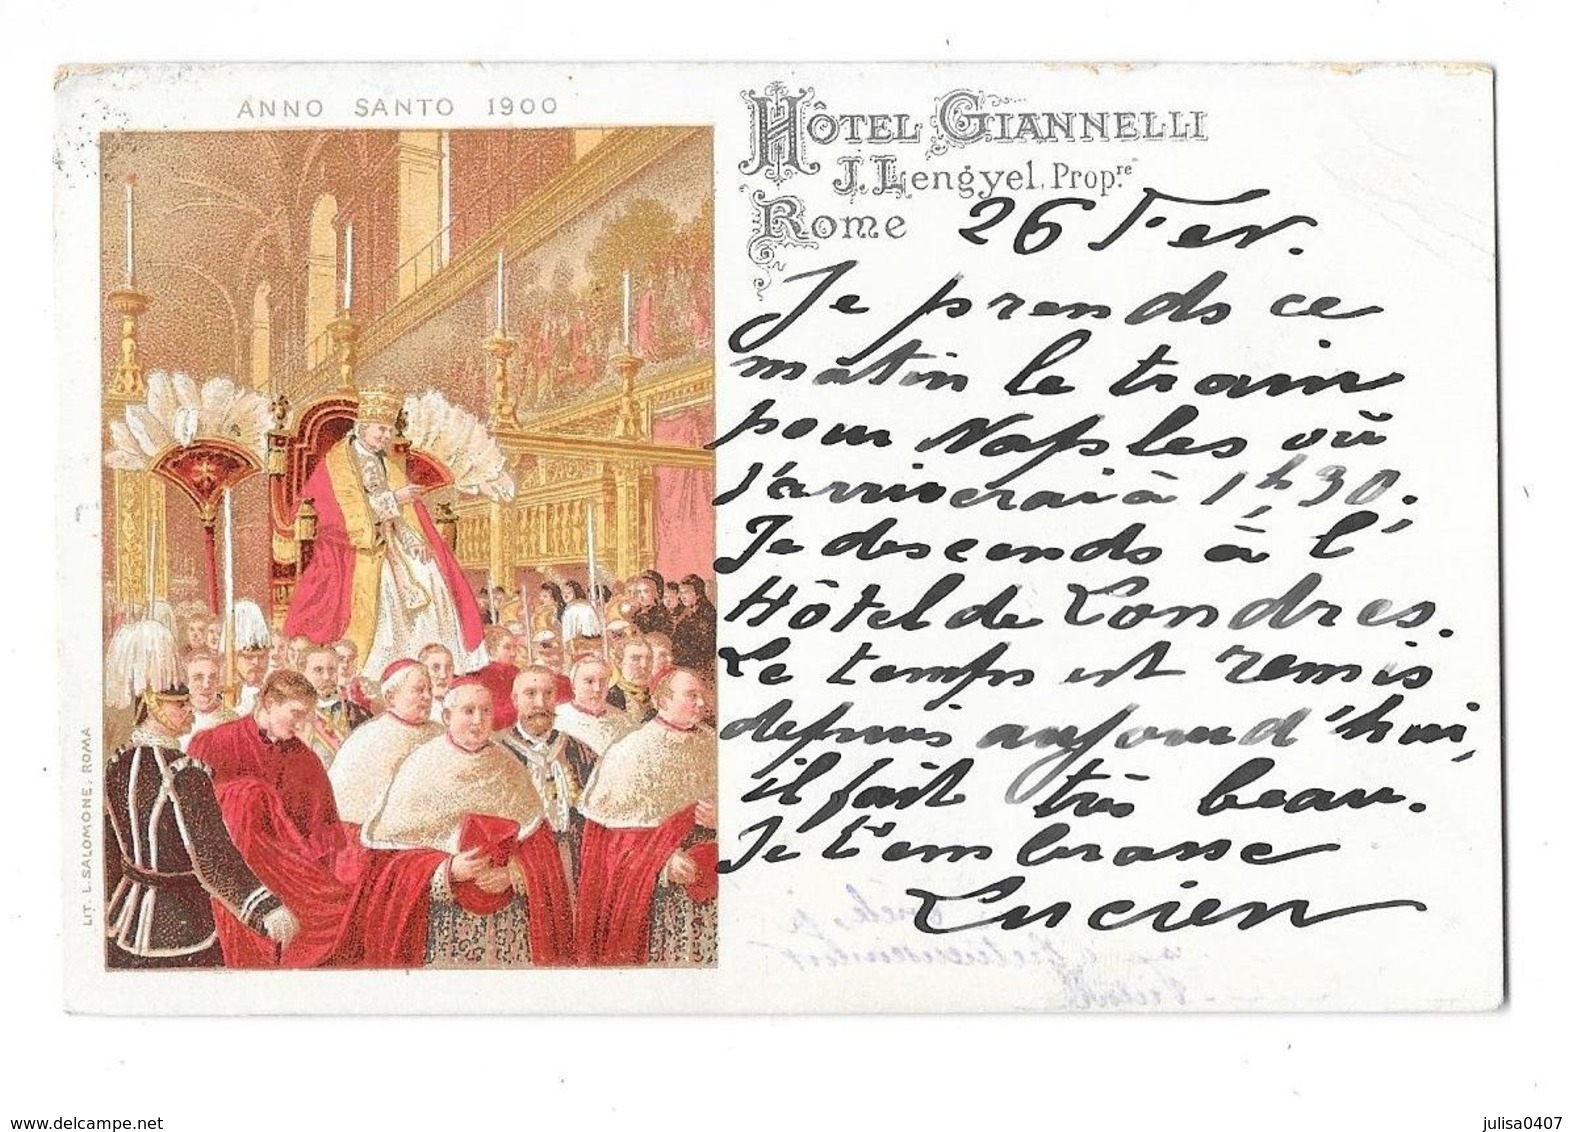 ANNO SANTO 1900
HÔTEL GIANNELLI
J. Lengyel, Prop.re
Rome
26 Fev.
Je prends ce
matin le train
pour Naples où
j'arriverai à 1h30.
Je descends à l'
Hôtel de Londres.
Le temps est remis
depuis aujourd'hui,
il fait très beau.
Je t'embrasse
Lucien
LIT. L. SALOMONE. ROMA
delcampe.net
julisa0407